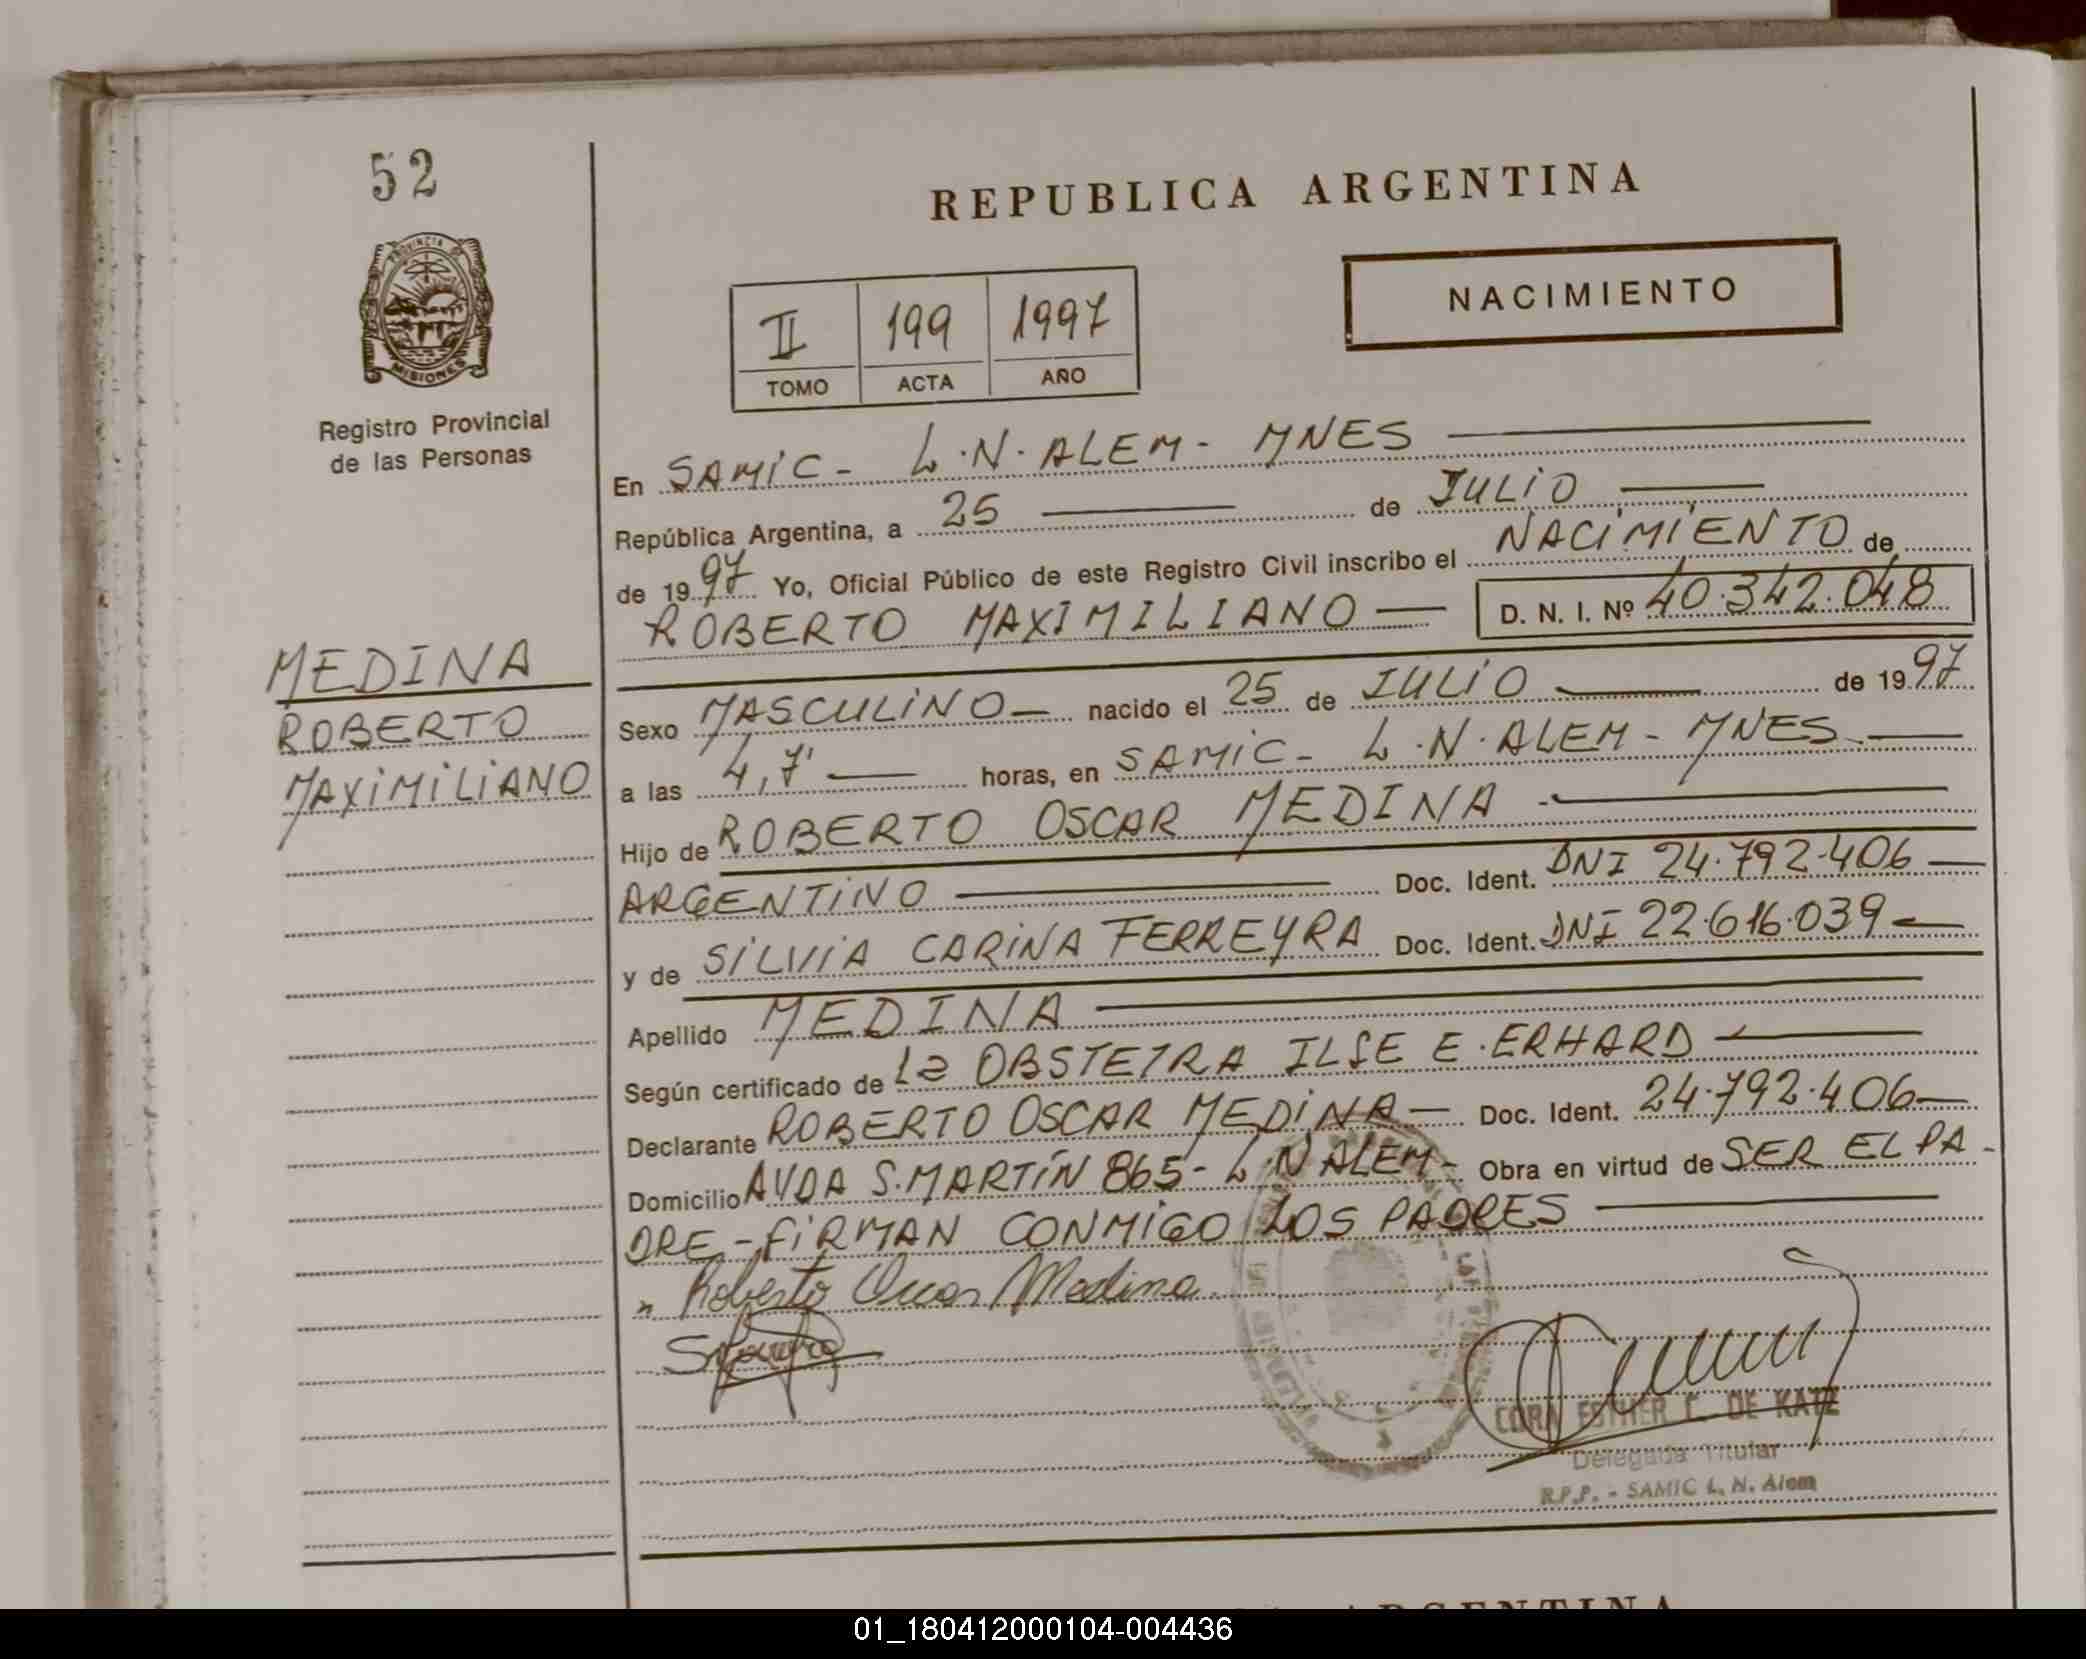 52
REPUBLICA ARGENTINA
NACIMIENTO
II 199 1997
TOMO ACTA AÑO
PROVINCIA DE
MISIONES
Registro Provincial
de las Personas
En SAMIC - L.N.ALEM - MNES
República Argentina, a 25 de JULIO
de 1997 Yo, Oficial Público de este Registro Civil inscribo el NACIMIENTO de
ROBERTO MAXIMILIANO D. N. I. Nº 40.342.048
MEDINA
ROBERTO
MAXIMILIANO
Sexo MASCULINO nacido el 25 de JULIO de 1997
a las 4,7' horas, en SAMIC - L.N.ALEM - MNES
Hijo de ROBERTO OSCAR MEDINA
ARGENTINO Doc. Ident. DNI 24.792.406
y de SILVIA CARINA FERREYRA Doc. Ident. DNI 22.616.039
Apellido MEDINA
Según certificado de la OBSTETRA ILSE E. ERHARD
Declarante ROBERTO OSCAR MEDINA Doc. Ident. 24.792.406
Domicilio AVDA S.MARTÍN 865 - L.N ALEM - Obra en virtud de SER EL PA-
DRE - FIRMAN CONMIGO LOS PADRES
Roberto Oscar Medina
CORA ESTHER C. DE KATZ
Delegada Titular
R.P.P. - SAMIC L. N. Alem
ARGENTINA
01_180412000104-004436